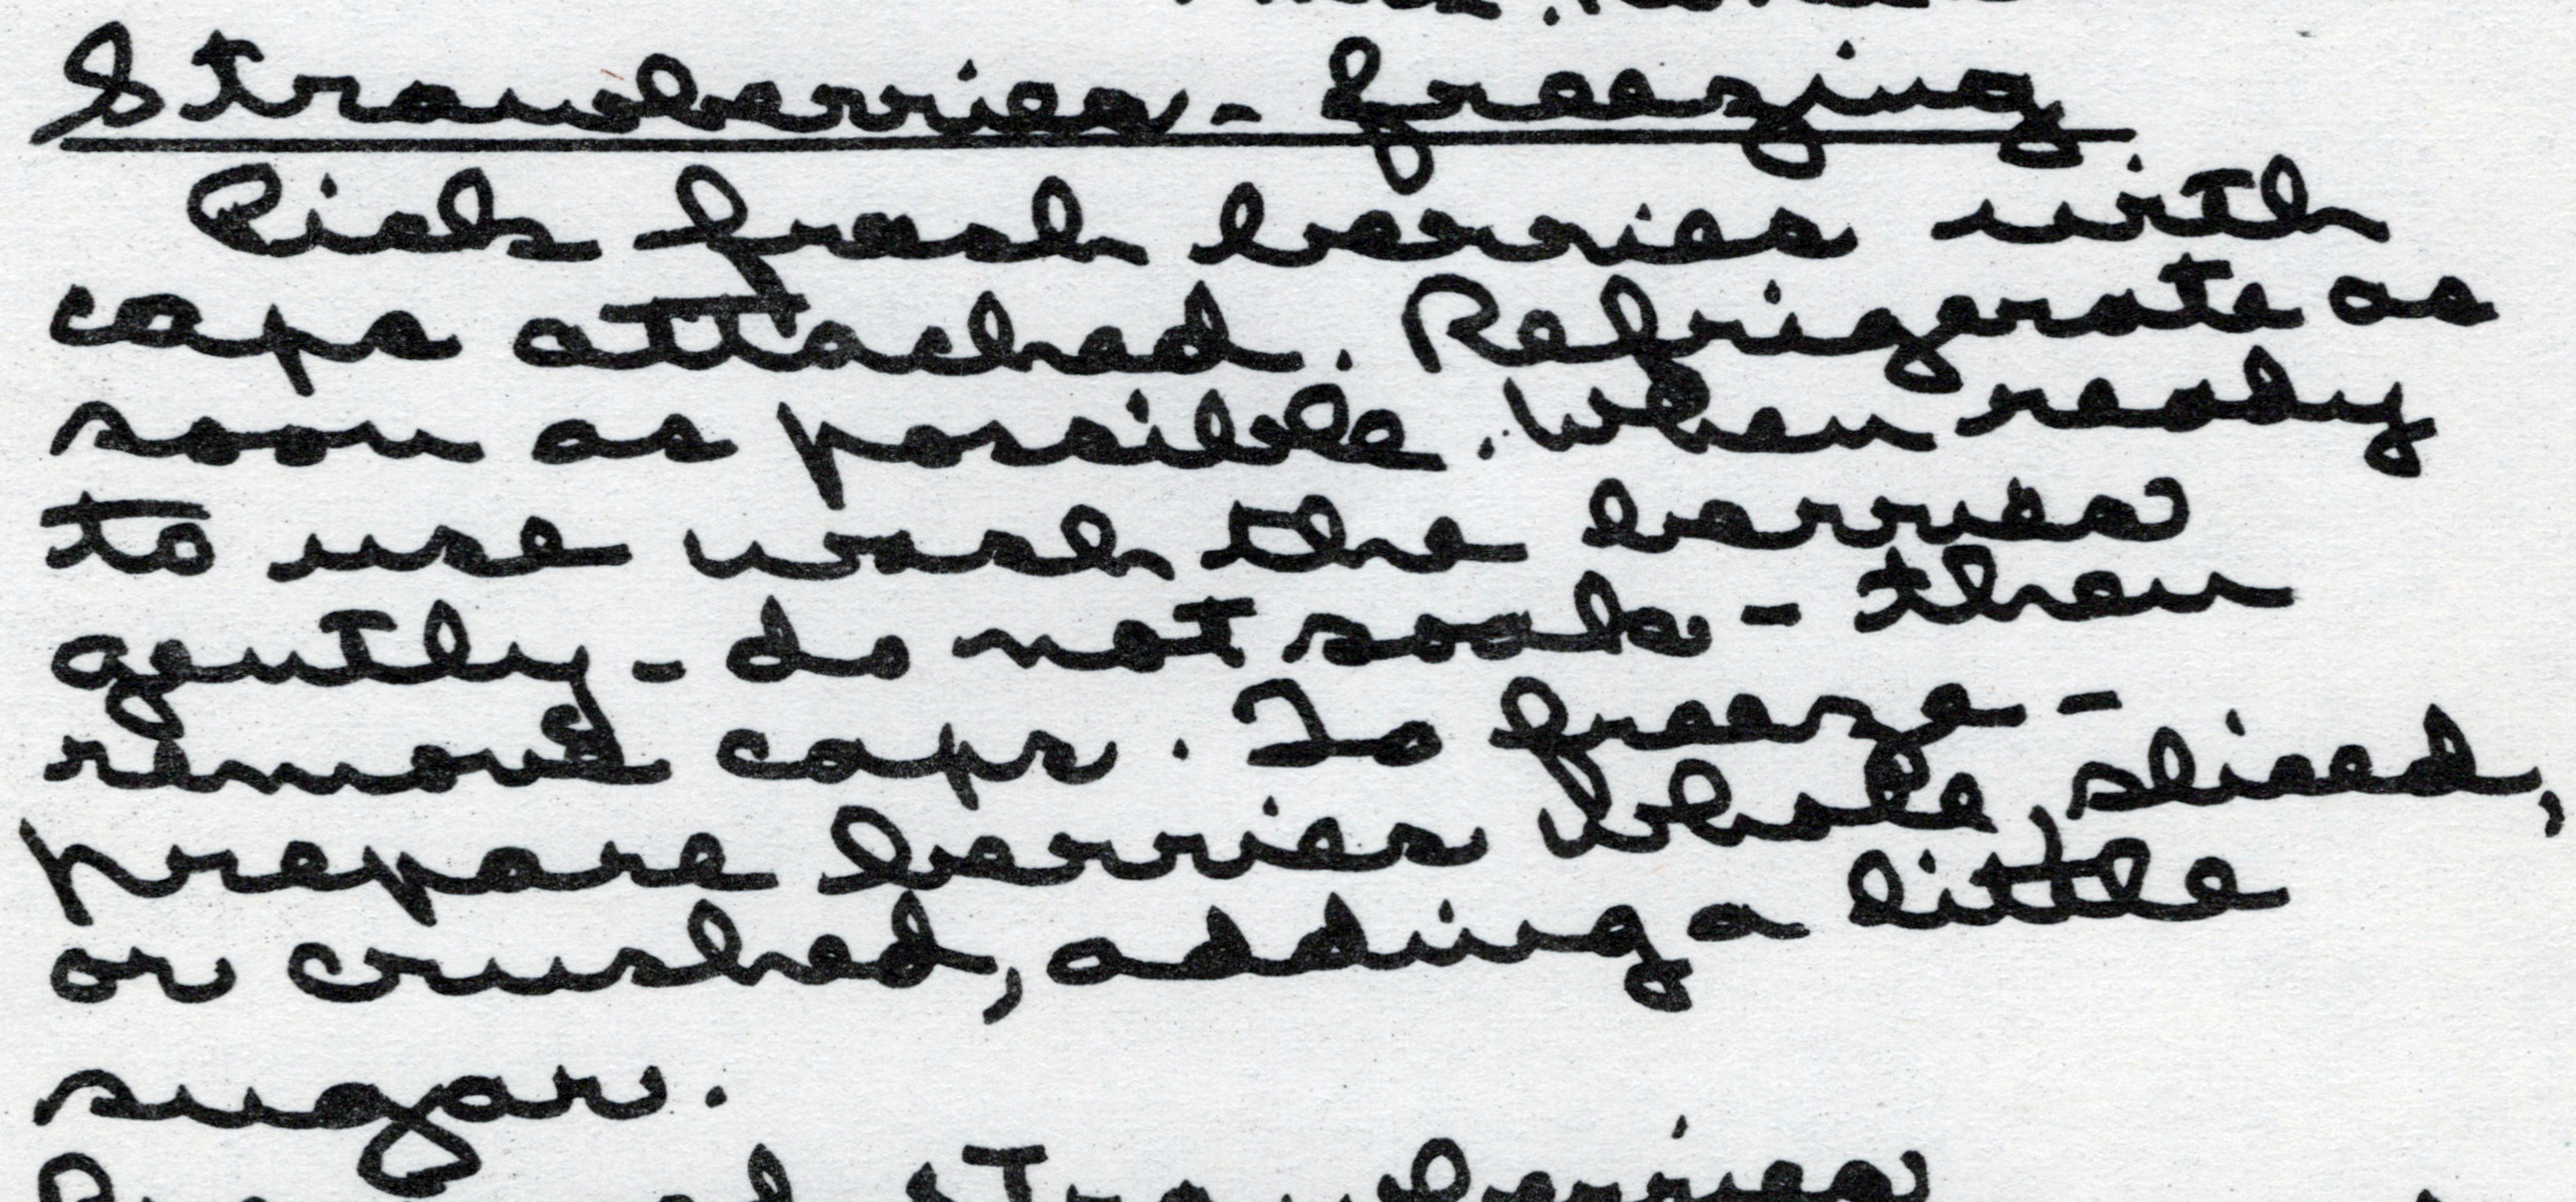 Strawberries - freezing
Pick fresh berries with
caps attached. Refrigerate as
soon as possible. When ready
to use wash the berries
gently - do not soak - then
remove caps. To freeze -
prepare berries whole, sliced,
or crushed, adding a little
sugar.
strawberries